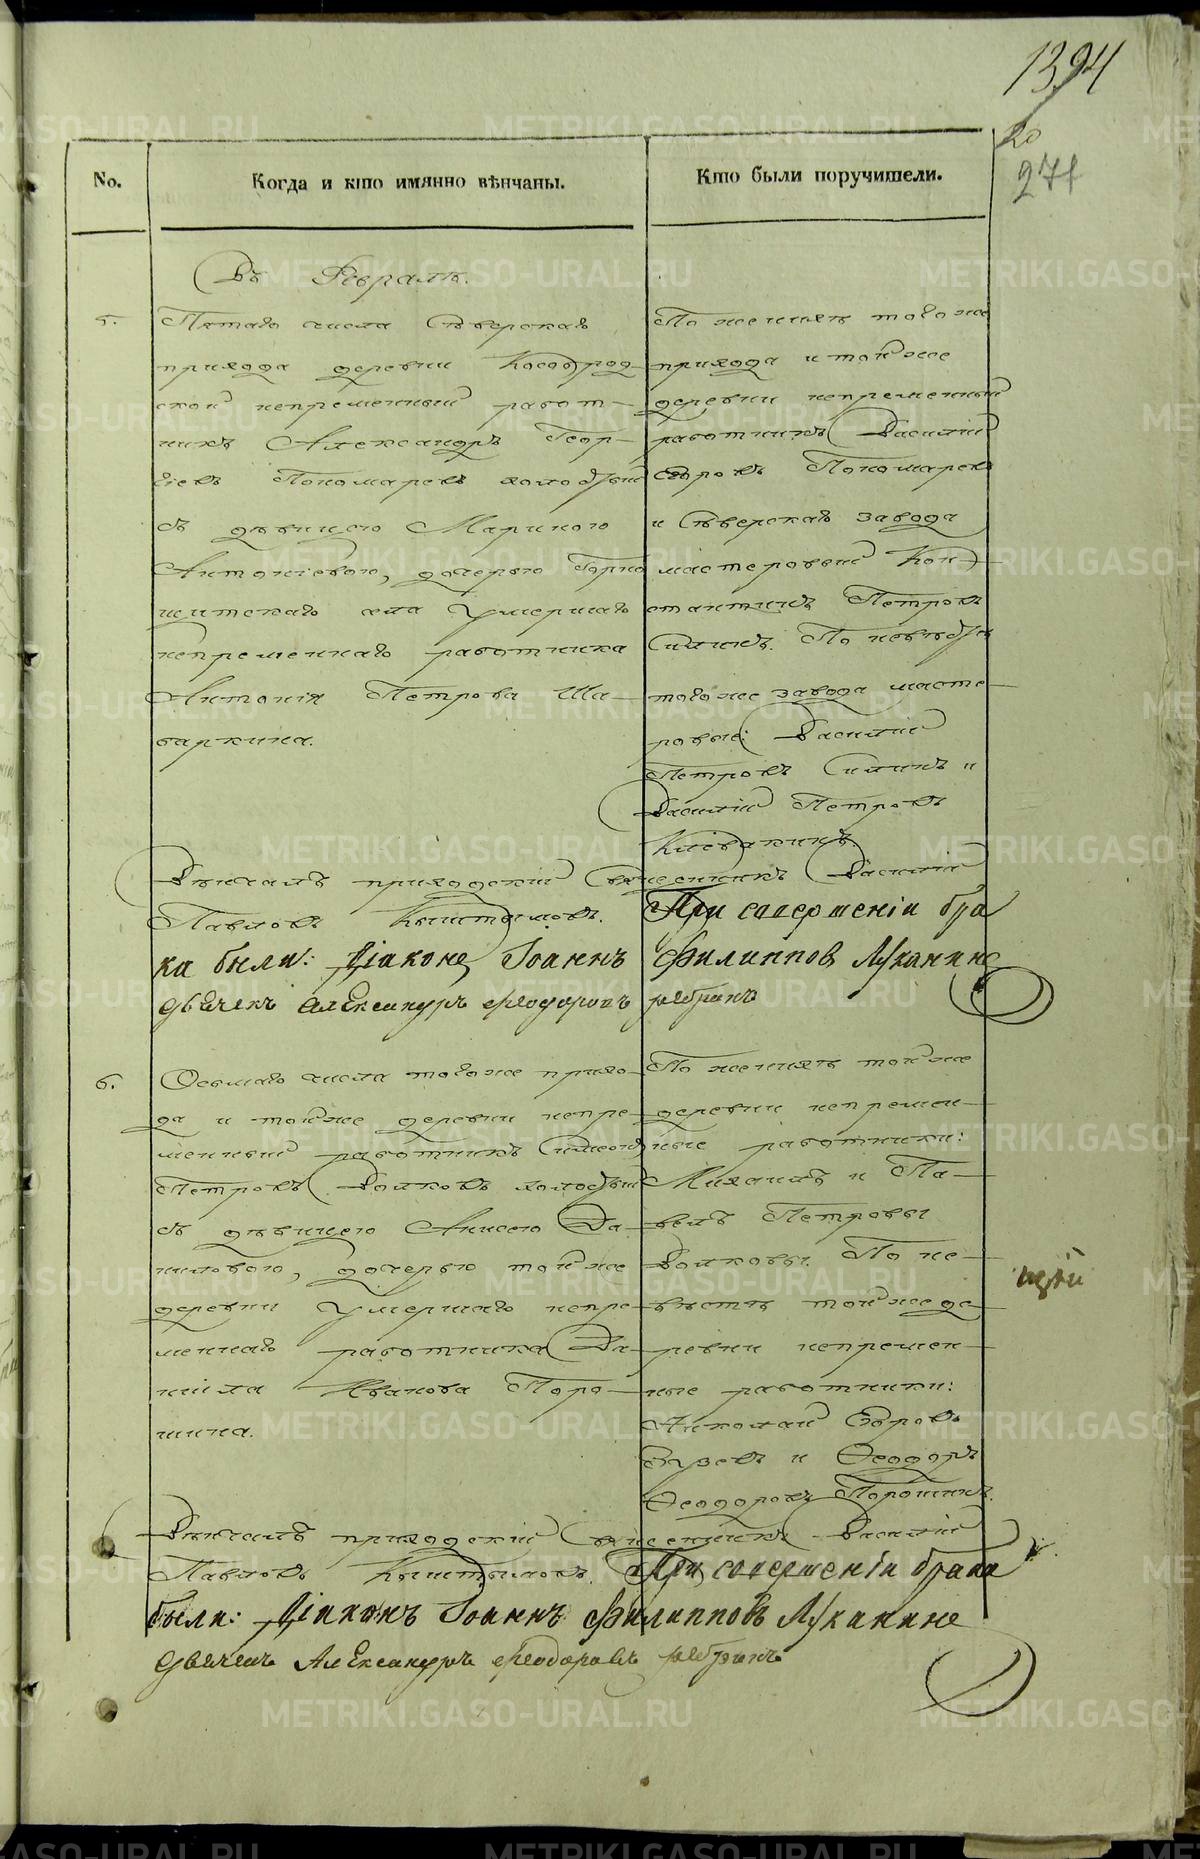 1394
20
271
No.
Когда и кто имянно вѣнчаны.
Кто были поручители.
Въ Февралѣ.
5.
Пятаго числа Сѣверскаго
прихода деревни Кособрод-
ской непременный работ-
никъ Александръ Геор-
гіевъ Пономаревъ холостый
съ дѣвицею Мариною
Антоніевою, дочерью Горно
щитскаго села умершаго
непременнаго работника
Антонія Петрова Ша-
баркина.
По женихѣ того же
прихода и той же
деревни непременный
работникъ Василій
Егоровъ Пономаревъ
и Сѣверскаго завода
мастеровый Кон-
стантинъ Петровъ
Силинъ. По невѣстѣ
того же завода масте-
ровые: Василій
Петровъ Силинъ и
Василій Петровъ
Вѣнчалъ приходскій Священникъ Василій
Павловъ Кыштымовъ. При совершеніи бра
ка были: Діаконъ Іоаннъ Филипповъ Луканинъ
дьячекъ Александръ Феодоровъ
6.
Осьмаго числа того же прихо-
да и той же деревни непре-
менный работникъ Симеонъ
Петровъ Волковъ холостый
съ дѣвицею Анисею Да-
ниловою, дочерью той же
деревни умершаго непре-
меннаго работника Да-
ніила Иванова Поро-
шина.
По женихѣ той же
деревни непремен-
ные работники:
Михаилъ и Па-
велъ Петровы
Волковы. По не-
вѣстѣ той же де-
ревни непремен-
ные работники:
Николай Егоровъ
Гусевъ и Феодоръ
Феодоровъ Порошинъ.
Вѣнчалъ приходскій Священникъ Василій
Павловъ Кыштымовъ. При совершеніи брака
были: Діаконъ Іоаннъ Филипповъ Луканинъ
дьячекъ Александръ Феодоровъ
METRIKI.GASO-URAL.RU